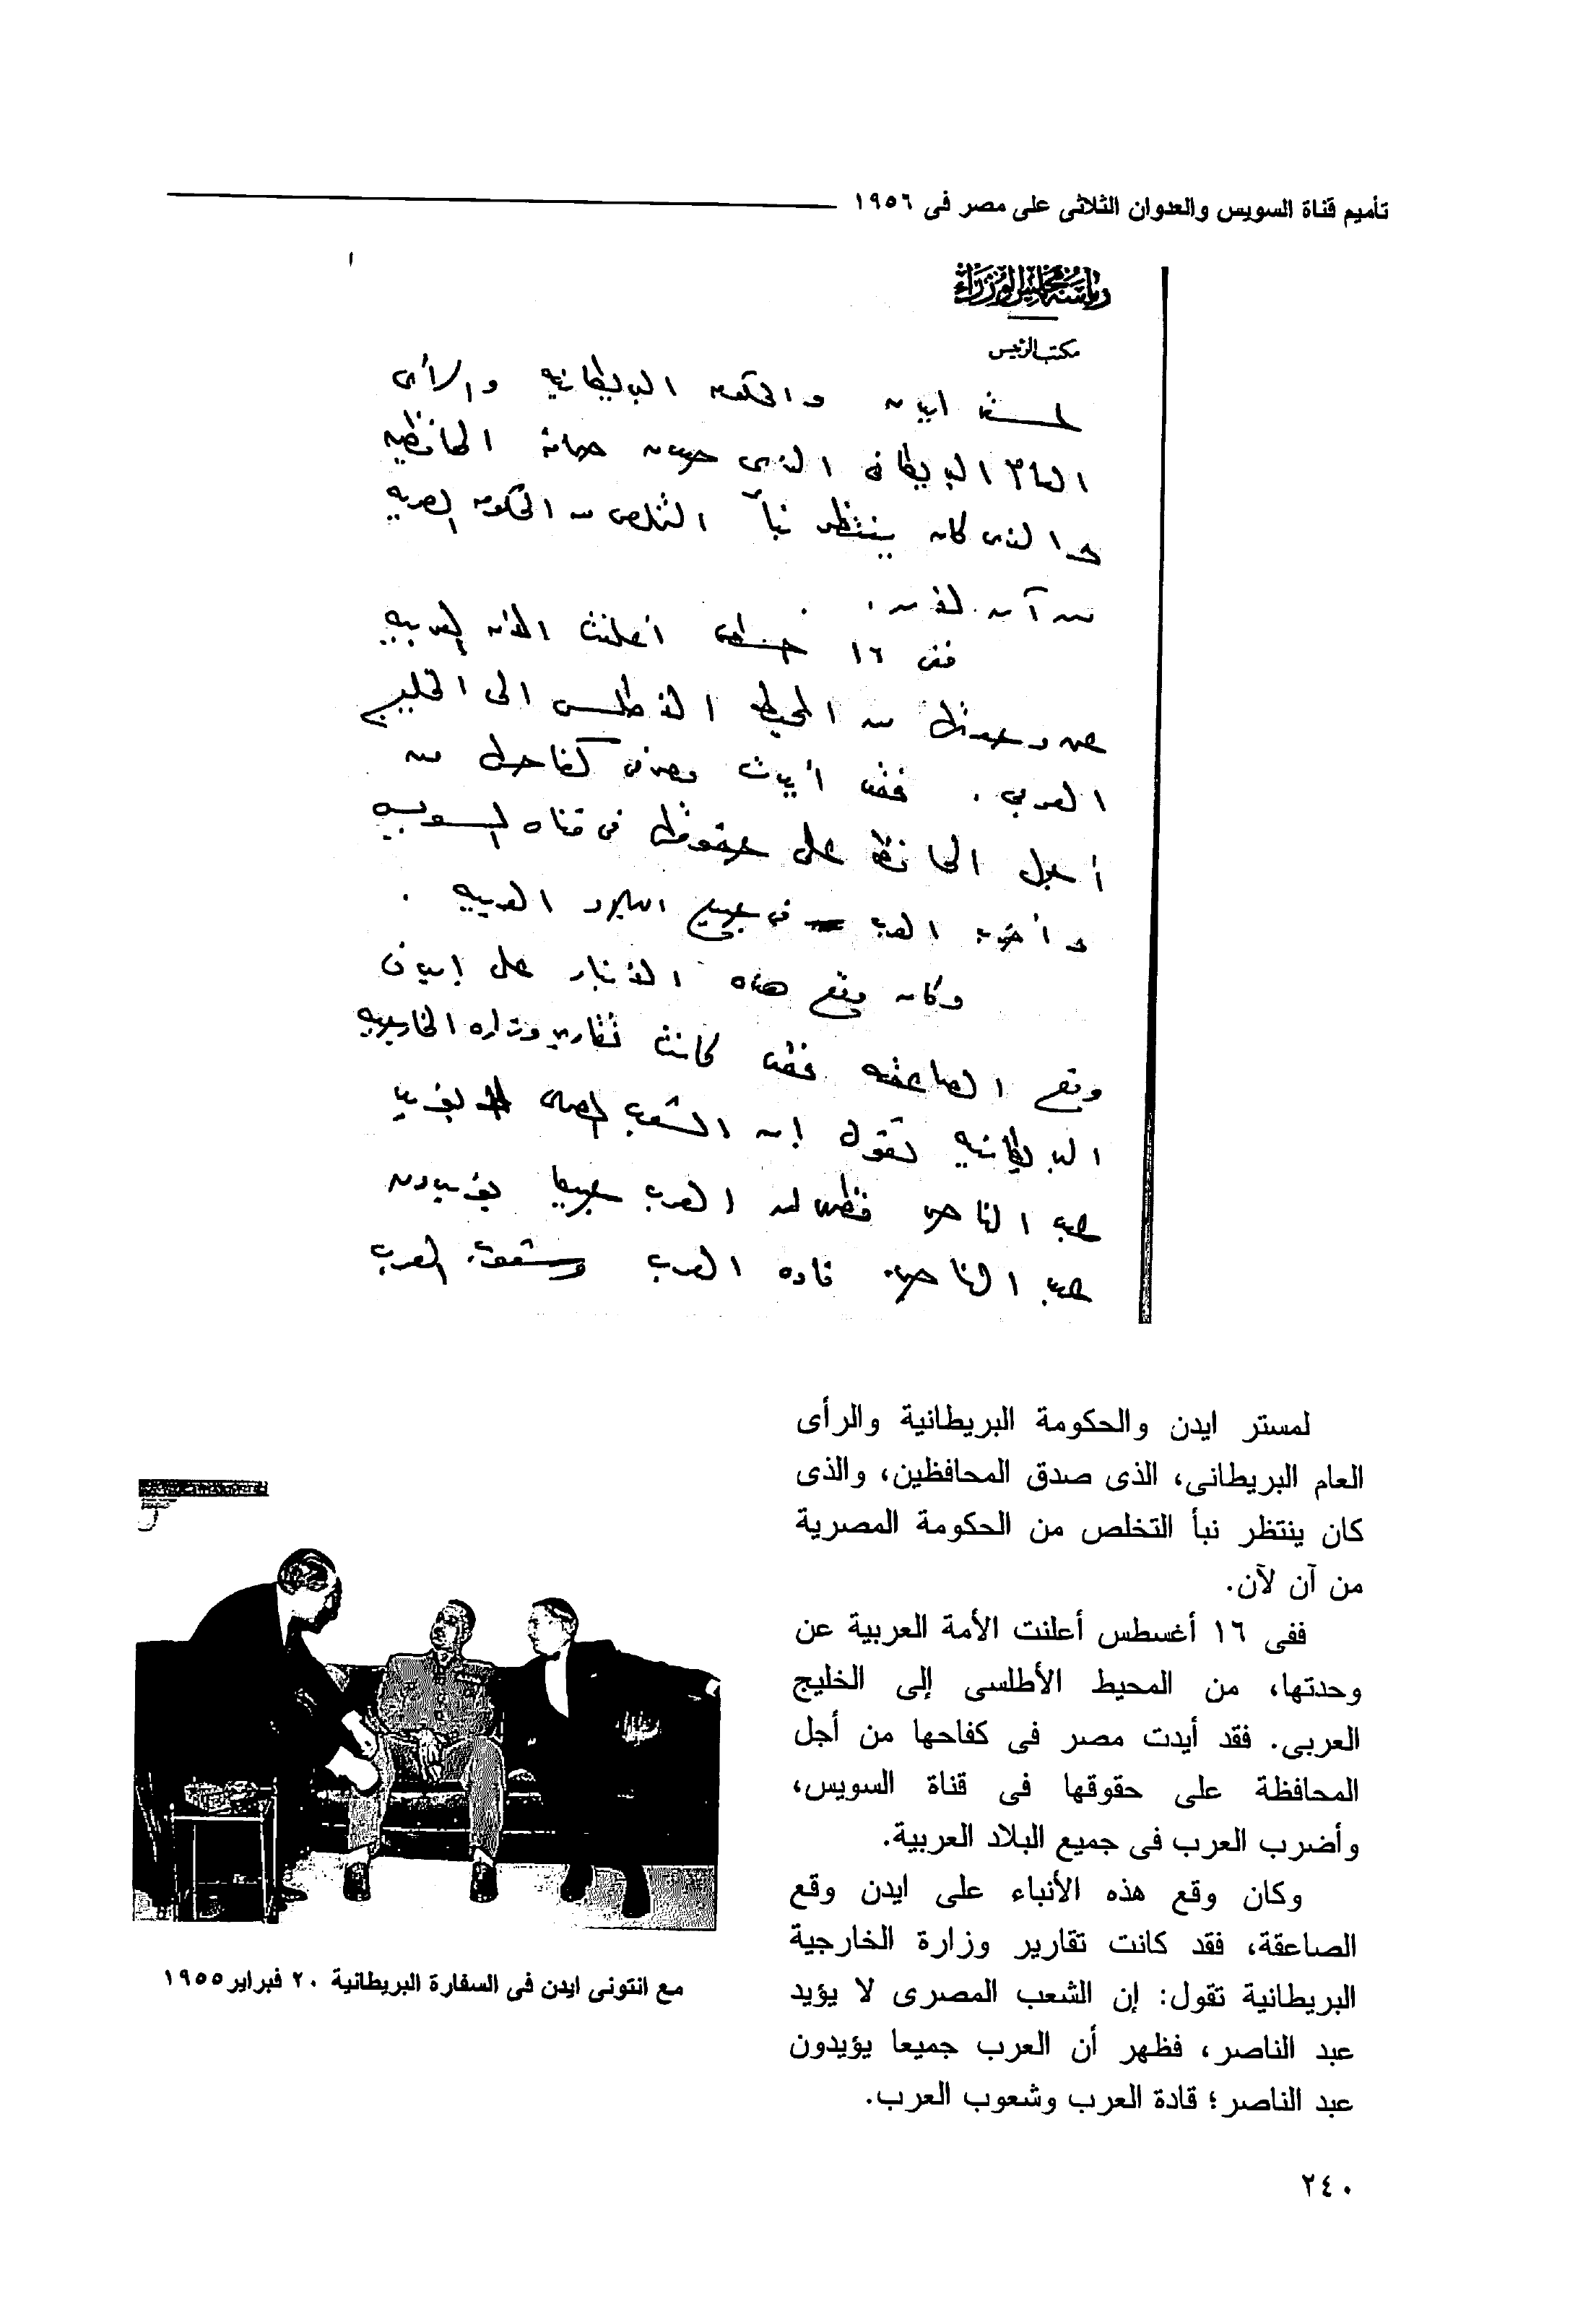 تأميم قناة السويس والعدوان الثلاثى على مصر فى ١٩٥٦
رئاسة مجلس الوزراء
مكتب الرئيس
لمستر ايدن والحكومه البريطانيه والرأى
العام البريطانى الذى
والذى كان ينتظر نبأ التخلص من الحكومه المصريه
من آن لآن.
ففى ١٦ اغسطس أعلنت الأمه العربيه
عن وحدتها من المحيط الأطلسى الى الخليج
العربى. فقد أيدت مصر فى كفاحها من
أجل المحافظه على حقوقها فى قناه السويس
وأضرب العرب فى جميع البلاد العربيه.
وكان وقع هذه الأنباء على إيدن
وقع الصاعقه فقد كانت تقارير وزاره الخارجيه
البريطانيه تقول إن الشعب المصرى لا يؤيد
عبد الناصر فظهر ان العرب جميعا يؤيدون
عبد الناصر. قاده العرب وشعوب العرب
لمستر ايدن والحكومة البريطانية والرأى
العام البريطانى، الذى صدق المحافظين، والذى
كان ينتظر نبأ التخلص من الحكومة المصرية
من آن لآن.
ففى ١٦ أغسطس أعلنت الأمة العربية عن
وحدتها، من المحيط الأطلسى إلى الخليج
العربى. فقد أيدت مصر فى كفاحها من أجل
المحافظة على حقوقها فى قناة السويس،
وأضرب العرب فى جميع البلاد العربية.
وكان وقع هذه الأنباء على ايدن وقع
الصاعقة، فقد كانت تقارير وزارة الخارجية
البريطانية تقول: إن الشعب المصرى لا يؤيد
عبد الناصر، فظهر أن العرب جميعا يؤيدون
عبد الناصر؛ قادة العرب وشعوب العرب.
مع انتونى ايدن فى السفارة البريطانية ٢٠ فبراير ١٩٥٥
٢٤٠